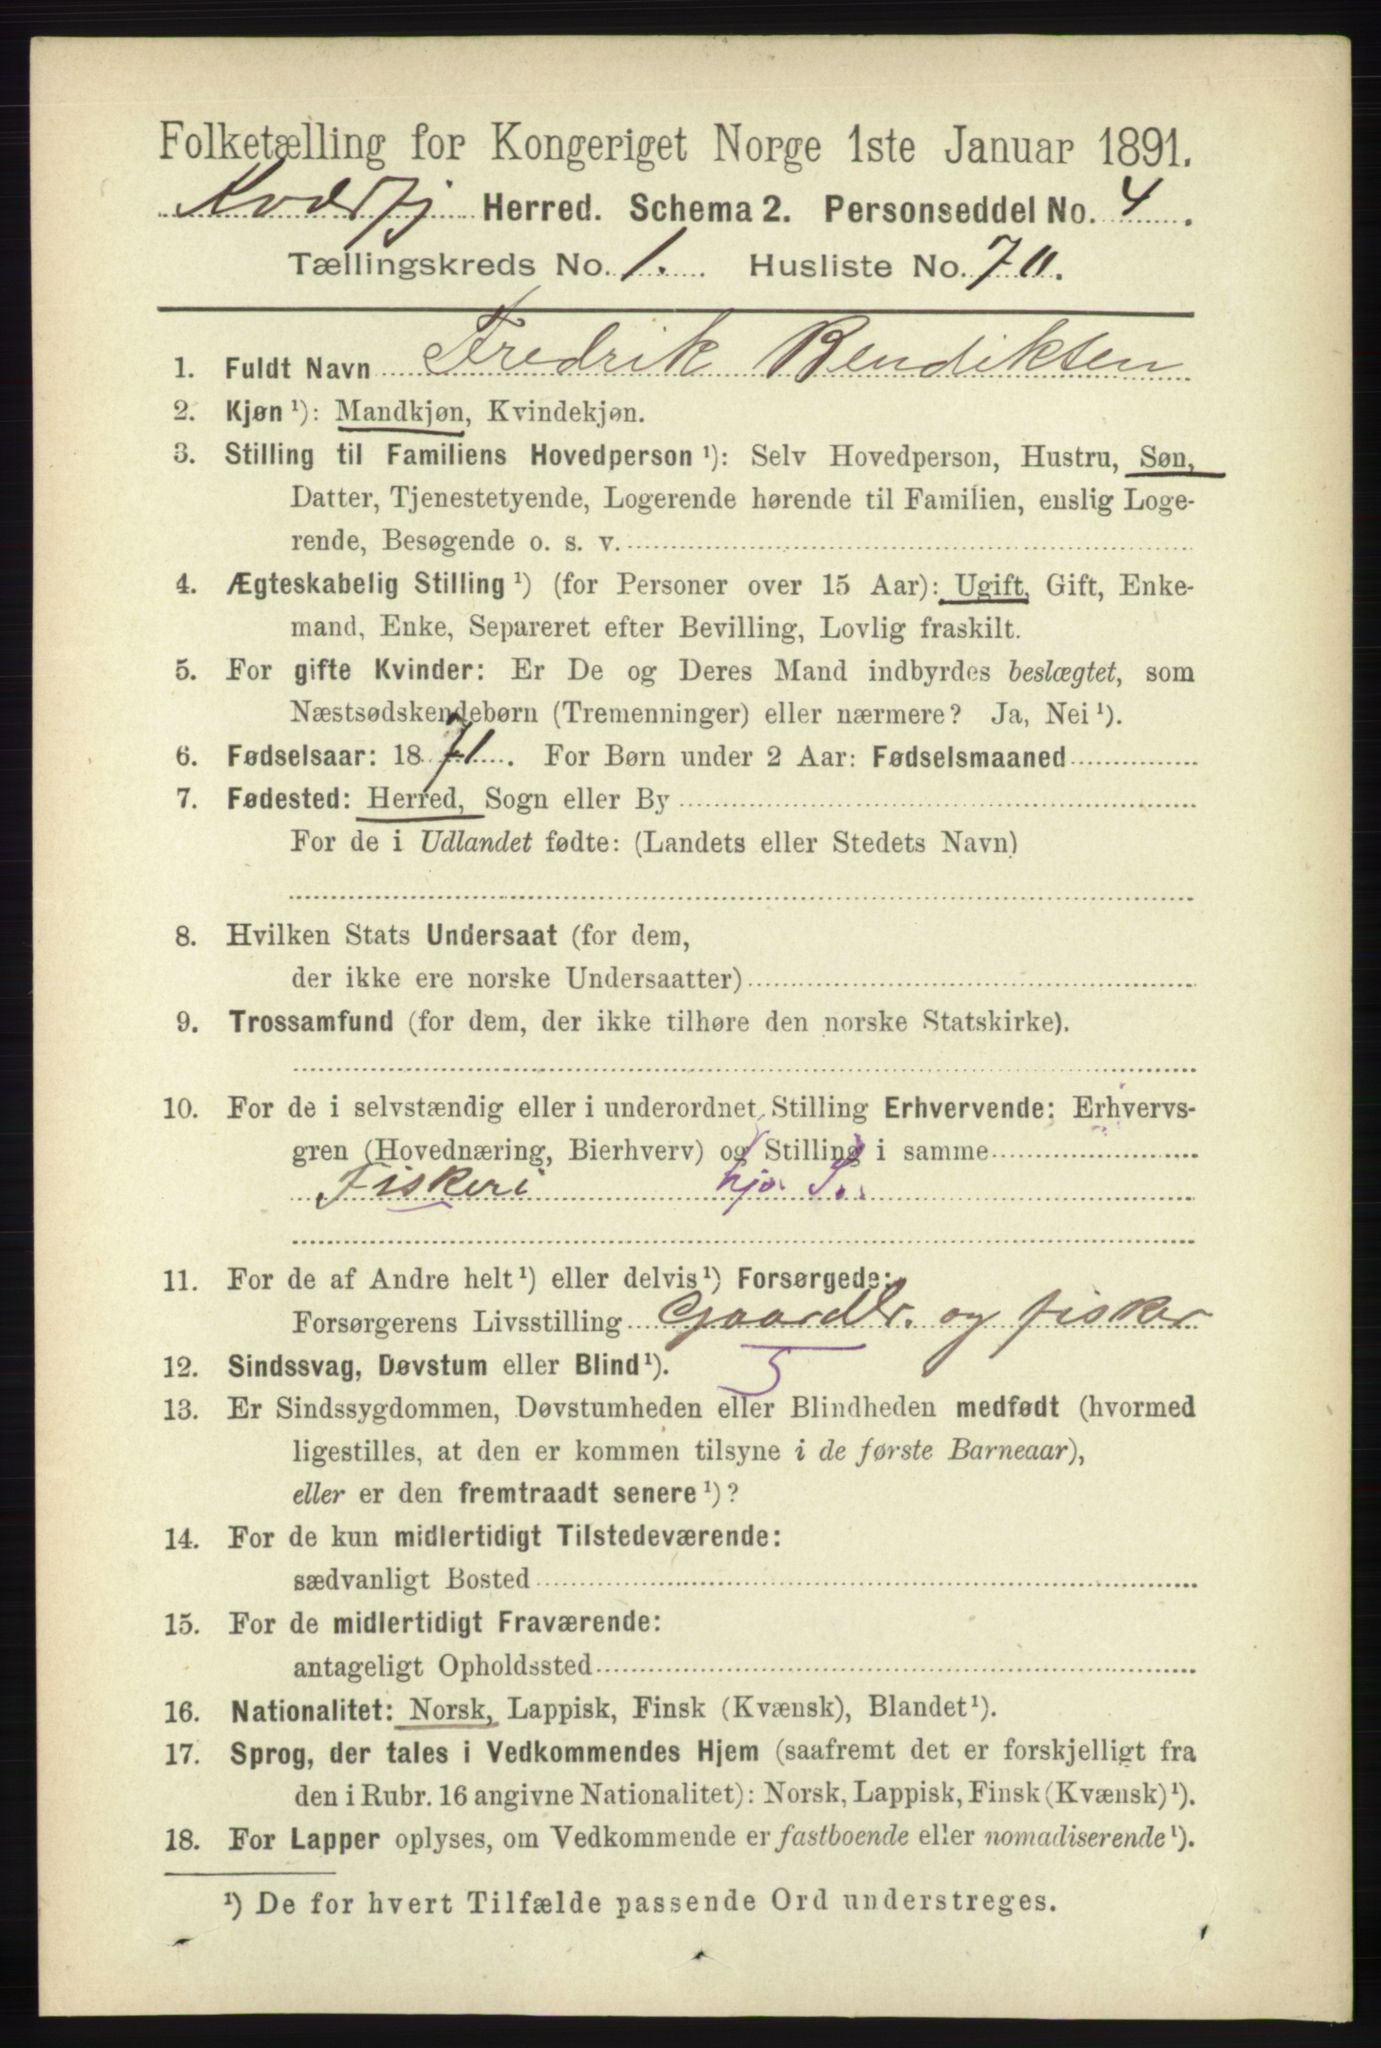 Folketælling for Kongeriget Norge 1ste Januar 1891.
Kvæfj Herred. Schema 2. Personseddel No. 4.
Tællingskreds No. 1. Husliste No. 70.
1. Fuldt Navn Fredrik Bendiktsen
2. Kjøn ¹): Mandkjøn, Kvindekjøn.
3. Stilling til Familiens Hovedperson ¹): Selv Hovedperson, Hustru, Søn,
Datter, Tjenestetyende, Logerende hørende til Familien, enslig Loge-
rende, Besøgende o. s. v.
4. Ægteskabelig Stilling ¹) (for Personer over 15 Aar): Ugift, Gift, Enke-
mand, Enke, Separeret efter Bevilling, Lovlig fraskilt.
5. For gifte Kvinder: Er De og Deres Mand indbyrdes beslægtet, som
Næstsødskendebørn (Tremenninger) eller nærmere? Ja, Nei ¹).
6. Fødselsaar: 1871. For Børn under 2 Aar: Fødselsmaaned
7. Fødested: Herred, Sogn eller By
For de i Udlandet fødte: (Landets eller Stedets Navn)
8. Hvilken Stats Undersaat (for dem,
der ikke ere norske Undersaatter)
9. Trossamfund (for dem, der ikke tilhøre den norske Statskirke).
10. For de i selvstændig eller i underordnet Stilling Erhvervende: Erhvervs-
gren (Hovednæring, Bierhverv) og Stilling i samme
Fiskeri hjs. S.
11. For de af Andre helt ¹) eller delvis ¹) Forsørgede:
Forsørgerens Livsstilling Gaardbr. og fisker
12. Sindssvag, Døvstum eller Blind ¹). 5
13. Er Sindssygdommen, Døvstumheden eller Blindheden medfødt (hvormed
ligestilles, at den er kommen tilsyne i de første Barneaar),
eller er den fremtraadt senere ¹)?
14. For de kun midlertidigt Tilstedeværende:
sædvanligt Bosted
15. For de midlertidigt Fraværende:
antageligt Opholdssted
16. Nationalitet: Norsk, Lappisk, Finsk (Kvænsk), Blandet ¹).
17. Sprog, der tales i Vedkommendes Hjem (saafremt det er forskjelligt fra
den i Rubr. 16 angivne Nationalitet): Norsk, Lappisk, Finsk (Kvænsk) ¹).
18. For Lapper oplyses, om Vedkommende er fastboende eller nomadiserende ¹).
¹) De for hvert Tilfælde passende Ord understreges.